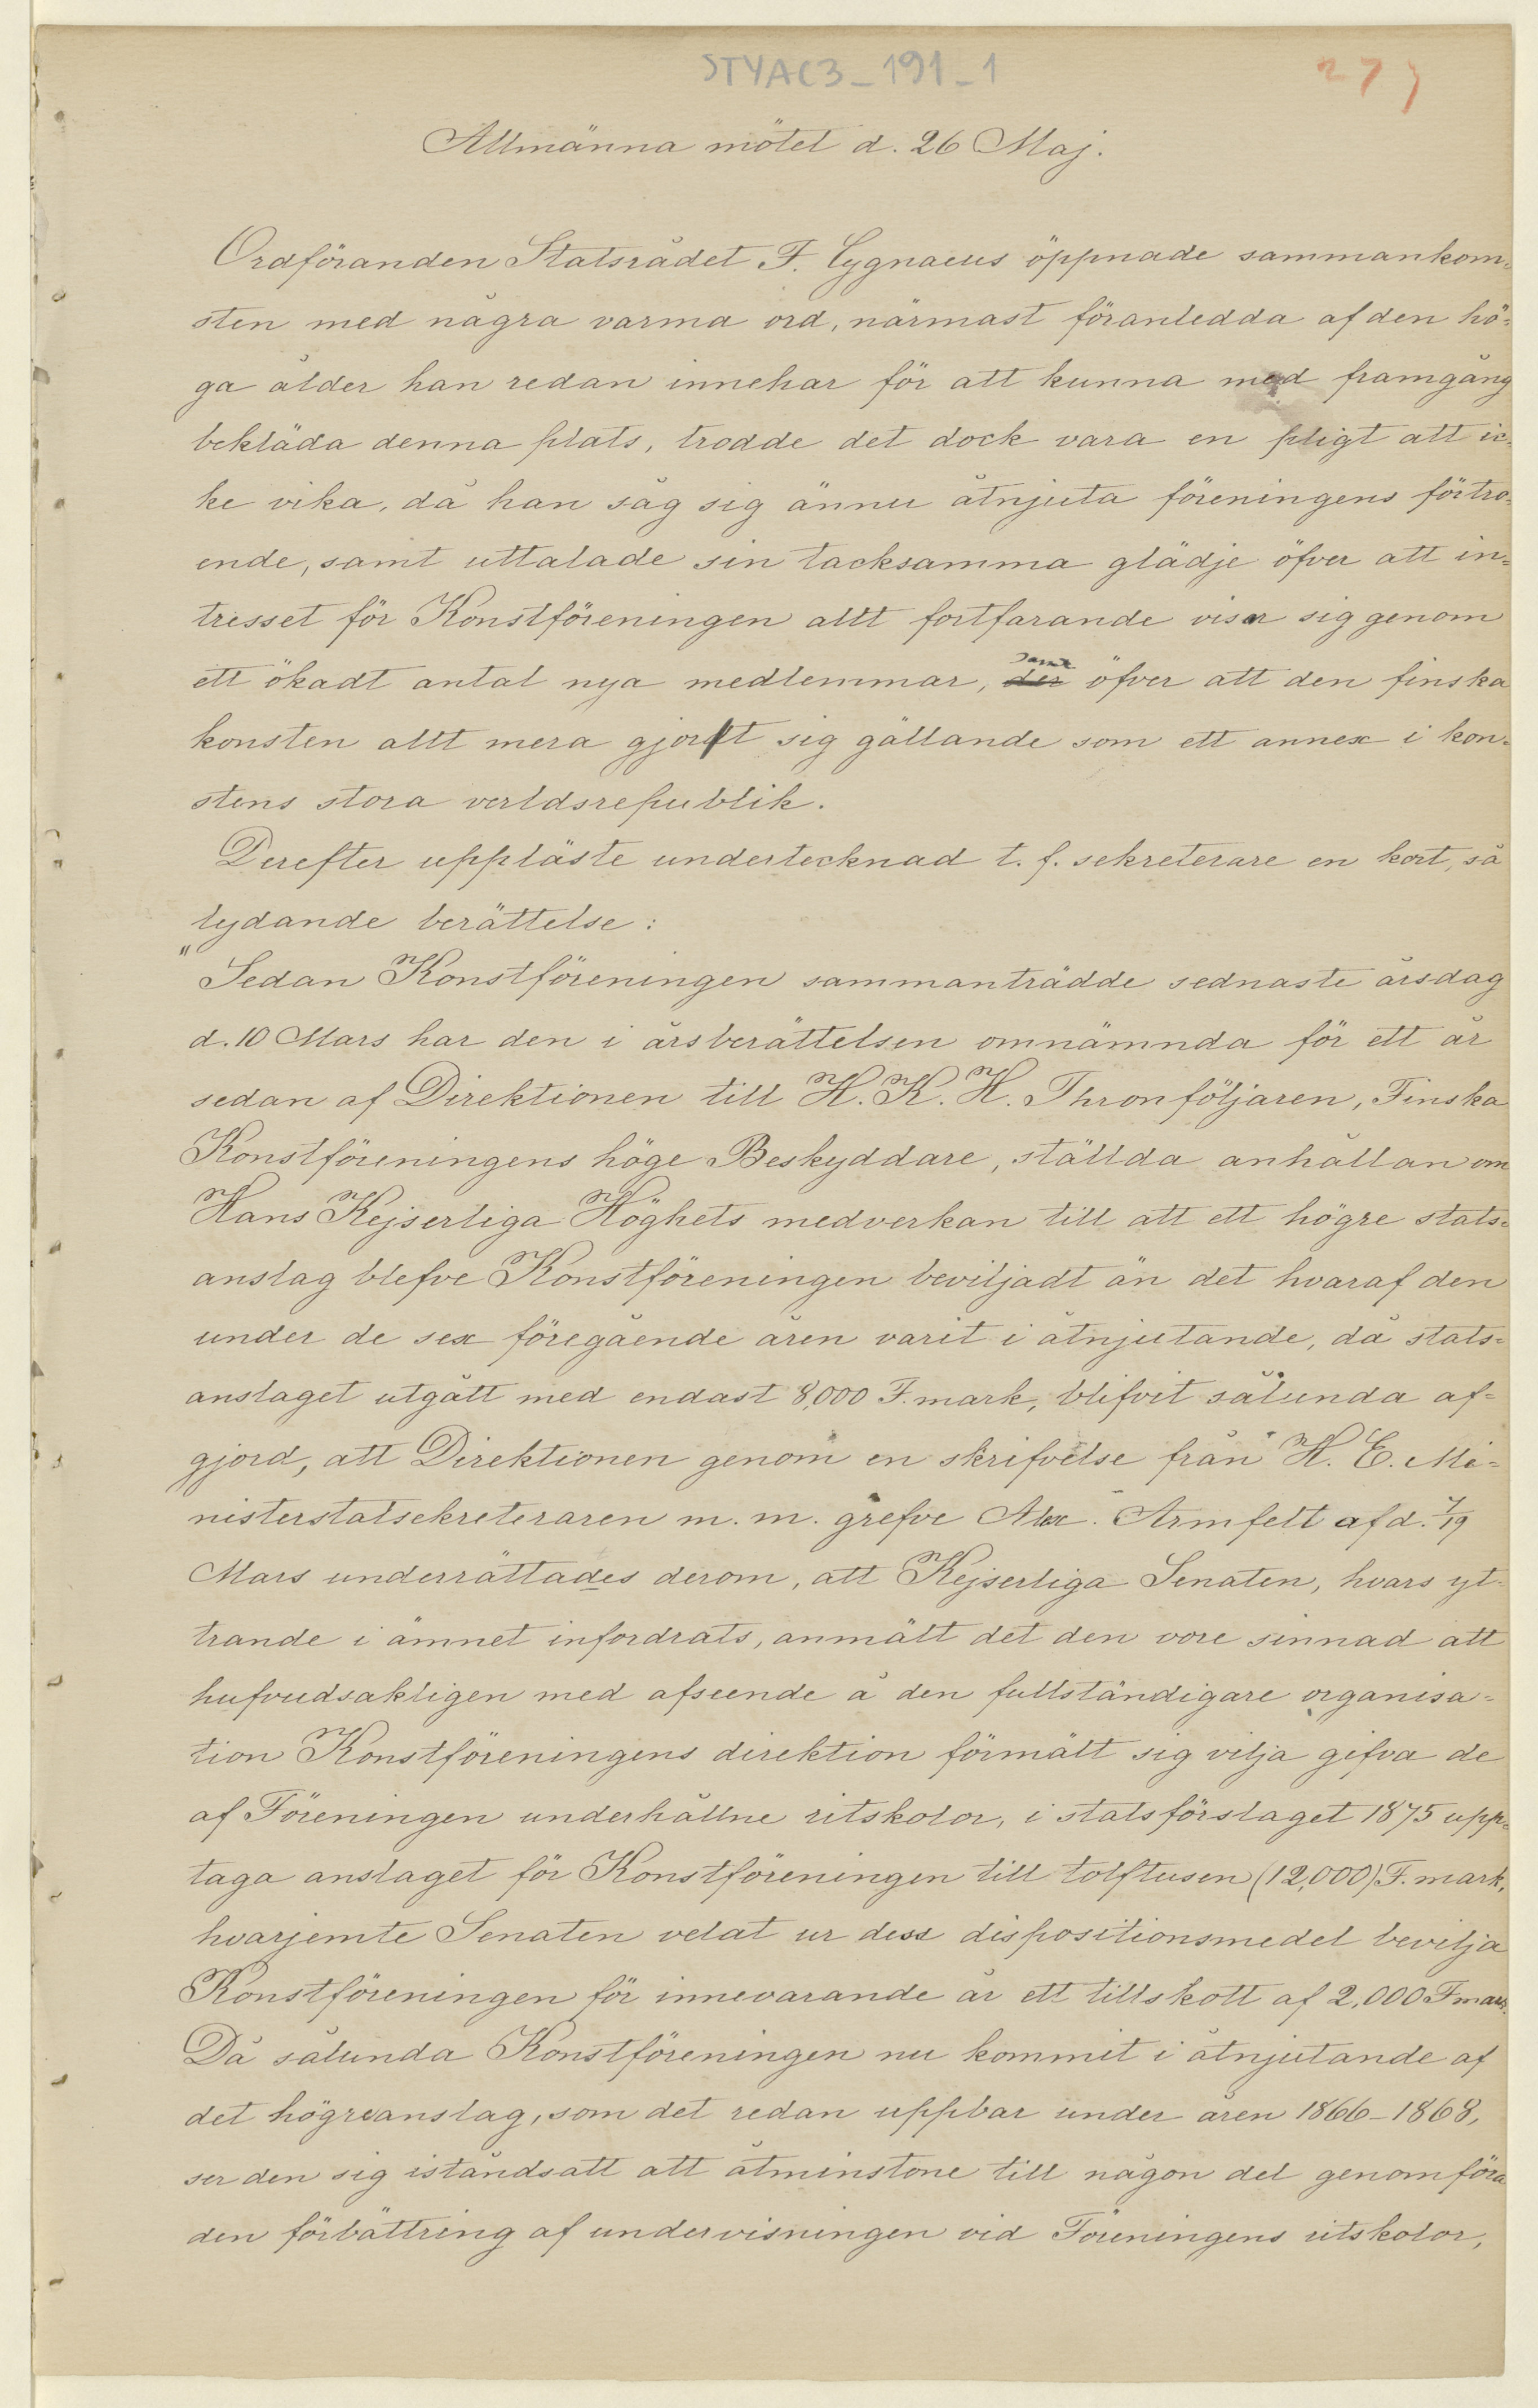 STYAC3_191_1
27
Allmänna mötet d. 26 Maj.
Ordföranden Statsrådet F. Cygnaeus öppnade sammankom-
sten med några varma ord, närmast föranledda af den hö-
ga ålder han redan innehar för att kunna med framgång
bekläda denna plats, trodde det dock vara en pligt att ic-
ke vika, då han såg sig ännu åtnjuta föreningens förtro-
ende, samt uttalade sin tacksamma glädje öfver att in-
tresset för Konstföreningen allt fortfarande viser sig genom
ett ökadt antal nya medlemmar, samt öfver att den finska
konsten allt mera gjort sig gällande som ett annex i kon-
stens stora verldsrepublik.
Derefter uppläste undertecknad t. f. sekreterare en kort, så
lydande berättelse:
"Sedan Konstföreningen sammanträdde sednaste årsdag
d. 10 Mars har den i årsberättelsen omnämnda för ett år
sedan af Direktionen till H. K. H. Thronföljaren, Finska
Konstföreningens höge Beskyddare, ställda anhållan om
Hans Kejserliga Höghets medverkan till att ett högre stats-
anslag blefve Konstföreningen beviljadt än det hvaraf den
under de sex föregående åren varit i åtnjutande, då stats-
anslaget utgått med endast 8,000 F. mark, blifvit sålunda af-
gjord, att Direktionen genom en skrifvelse från H. E. Mi-
nisterstatsekreteraren m. m. grefve Alex. Armfelt af d. 7/19
Mars underrättades derom, att Kejserliga Senaten, hvars yt-
trande i ämnet infordrats, anmält det den vore sinnad att
hufvudsakligen med afseende å den fullständigare organisa-
tion Konstföreningens direktion förmält sig vilja gifva de
af Föreningen underhållne ritskolor, i statsförslaget 1875 upp-
taga anslaget för Konstföreningen till tolftusen (12,000) F. mark,
hvarjemte Senaten velat ur dess dispositionsmedel bevilja
Konstföreningen för innevarande år ett tillskott af 2,000 Fmark.
Då sålunda Konstföreningen nu kommit i åtnjutande af
det högre anslag, som det redan uppbar under åren 1866-1868,
ser den sig iståndsatt att åtminstone till någon del genomföra
den förbättring af undervisningen vid Föreningens ritskolor,